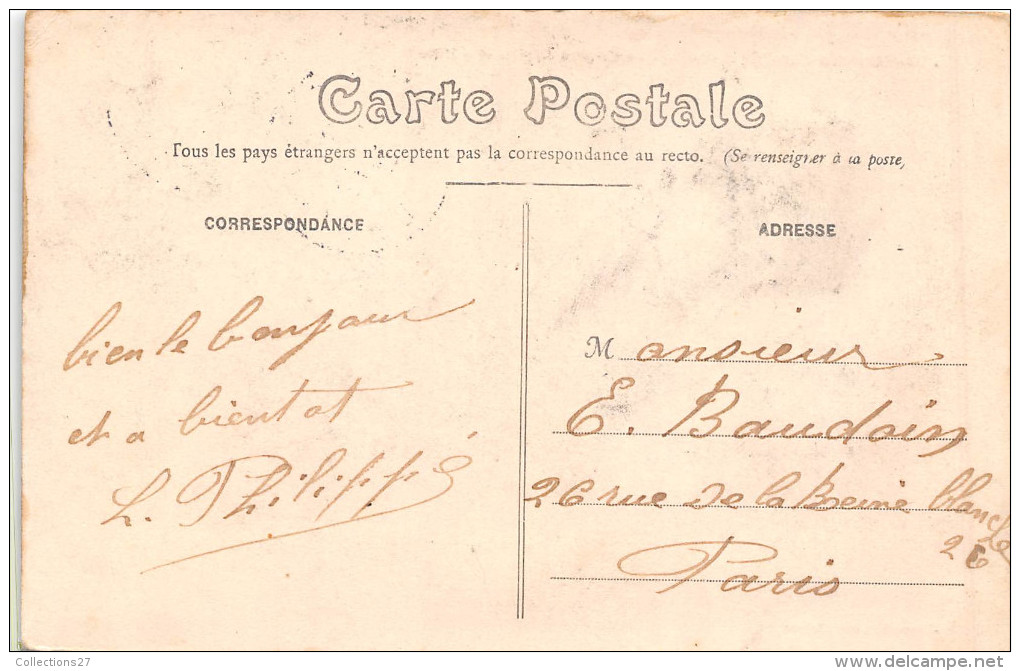 Carte Postale
Tous les pays étrangers n'acceptent pas la correspondance au recto. (Se renseigner à la poste)
CORRESPONDANCE
bien le bonjour
et a bientot
L. Philippe
ADRESSE
Monsieur
E. Baudoin
26 rue de la Reine blanche
26
Paris
Collections27
delcampe.net